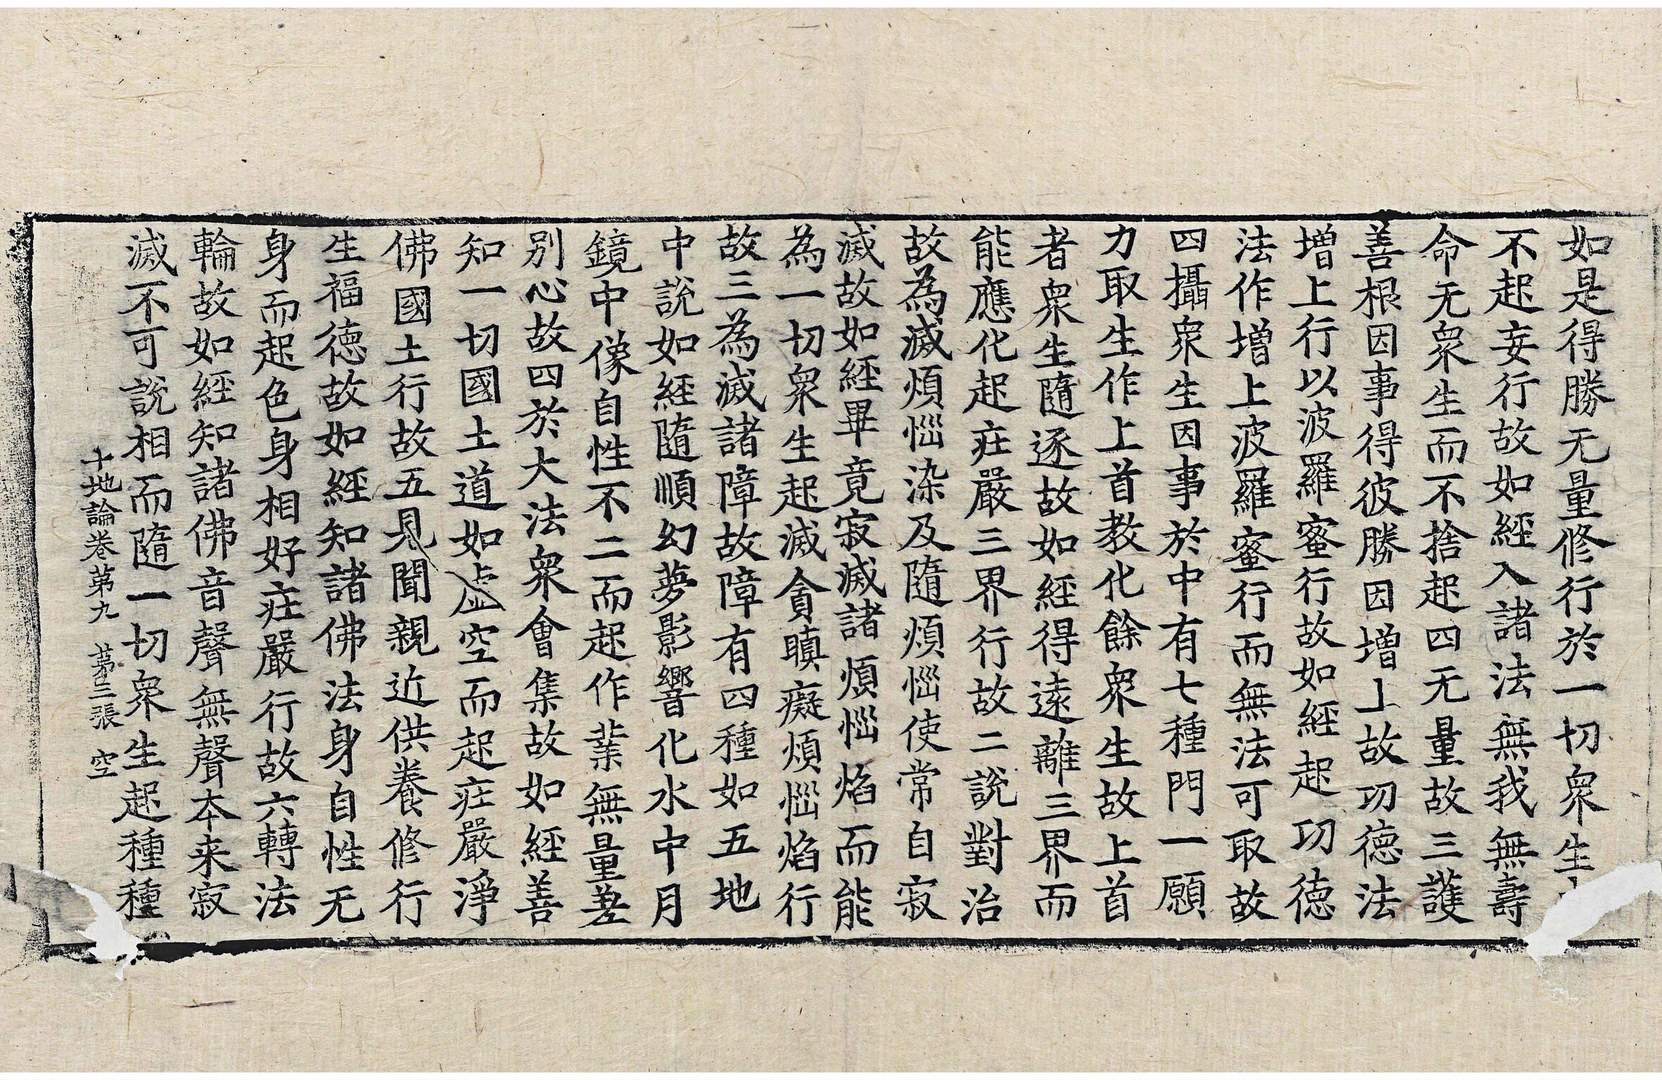 如是得勝无量修行於一切衆生
不起妄行故如經入諸法無我無壽
命无衆生而不捨起四无量故三護
善根因事得彼勝因增上故功德法
增上行以波羅蜜行故如經起功德
法作增上波羅蜜行而無法可取故
四攝衆生因事於中有七種門一願
力取生作上首教化餘衆生故上首
者衆生隨逐故如經得遠離三界而
能應化起疰嚴三界行故二說對治
故為滅煩惱染及隨煩惱使常自寂
滅故如經畢竟寂滅諸煩惱焰而能
為一切衆生起滅貪瞋癡煩惱焰行
故三為滅諸障故障有四種如五地
中說如經隨順幻夢影響化水中月
鏡中像自性不二而起作業無量差
別心故四於大法衆會集故如經善
知一切國土道如虛空而起疰嚴淨
佛國土行故五見聞親近供養修行
生福德故如經知諸佛法身自性无
身而起色身相好疰嚴行故六轉法
輪故如經知諸佛音聲無聲本来寂
滅不可說相而隨一切衆生起種種
十地論卷第九 苐三張 空